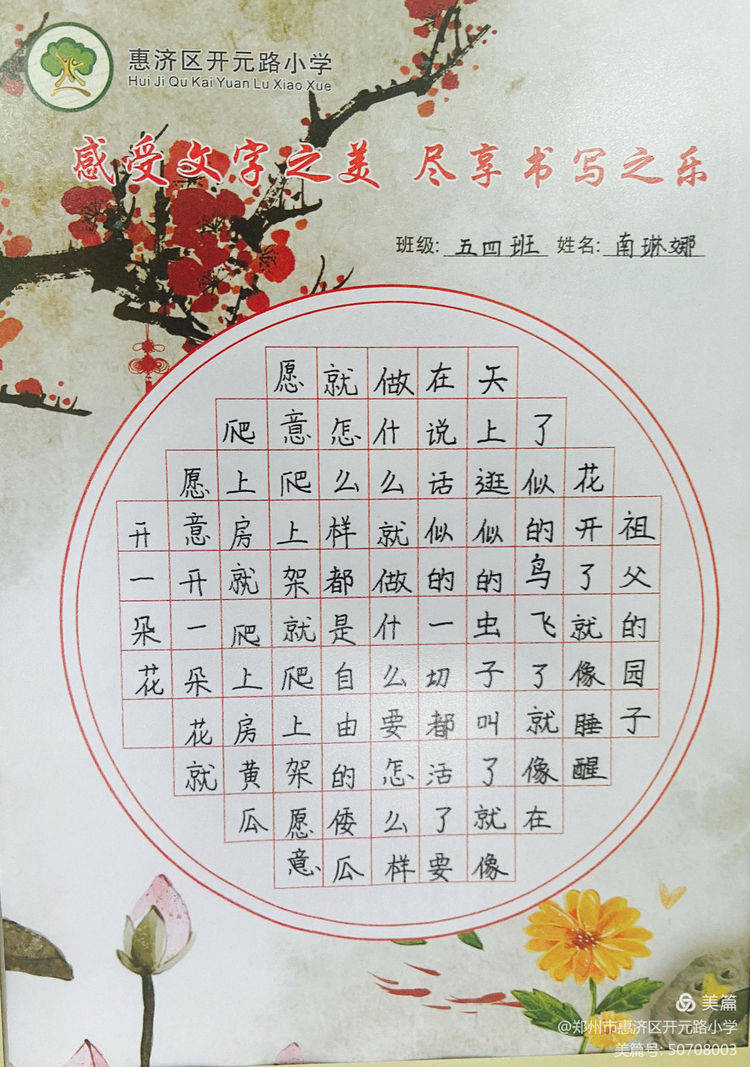 惠济区开元路小学
Hui Ji Qu Kai Yuan Lu Xiao Xue
感受文字之美 尽享书写之乐
班级: 五四班 姓名: 南琳娜
祖父的园子
花开了就像睡醒
了似的鸟飞了就像在
天上逛似的虫子叫了就像
在说话似的一切都活了要
做什么就做什么要怎么样
就怎么样都是自由的倭瓜
愿意爬上架就爬上架愿意
爬上房就爬上房黄瓜
愿意开一朵花就
开一朵花
美篇
@郑州市惠济区开元路小学
美篇号: 50708003